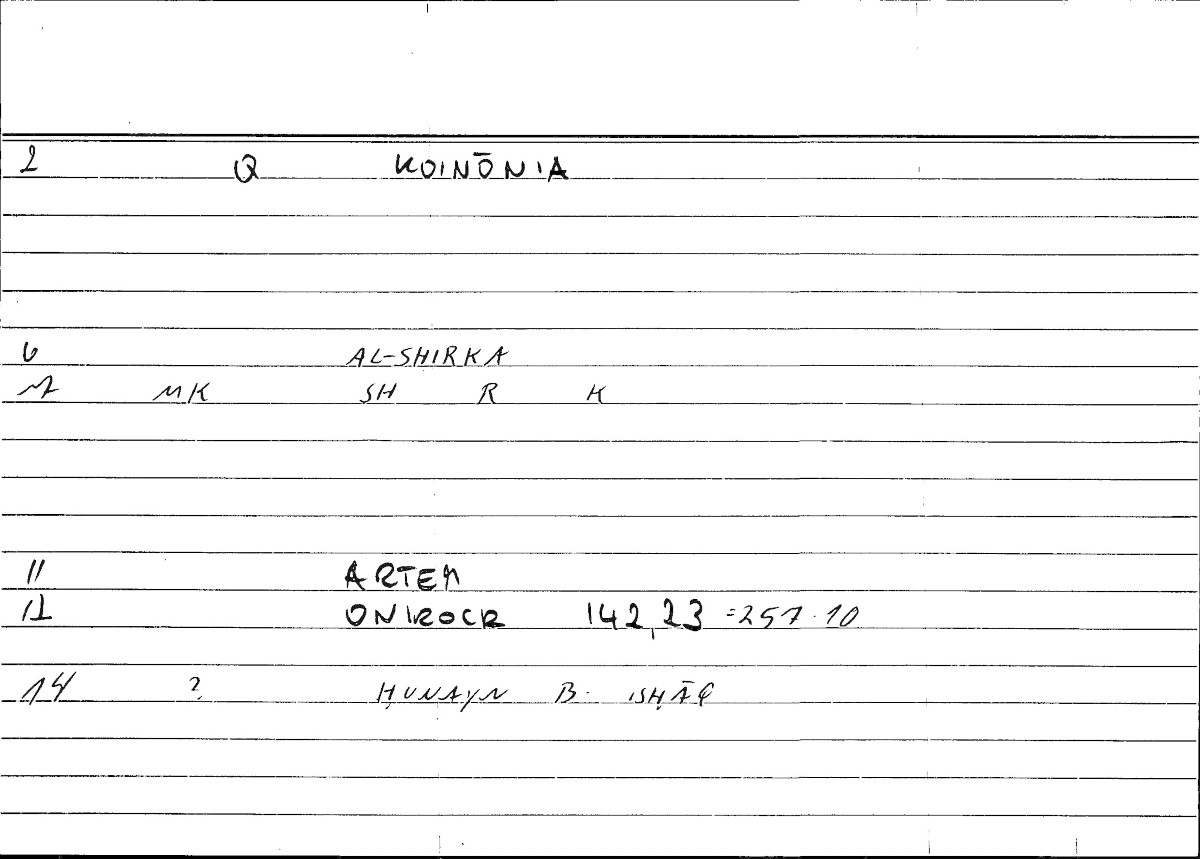 2 Q KOINŌNIA
6 AL-SHIRKA
7 MK SH R K
11 ARTEM
12 ONIROCR 142,23 =257.10
14 ? ḤUNAYN B. ISḤĀQ